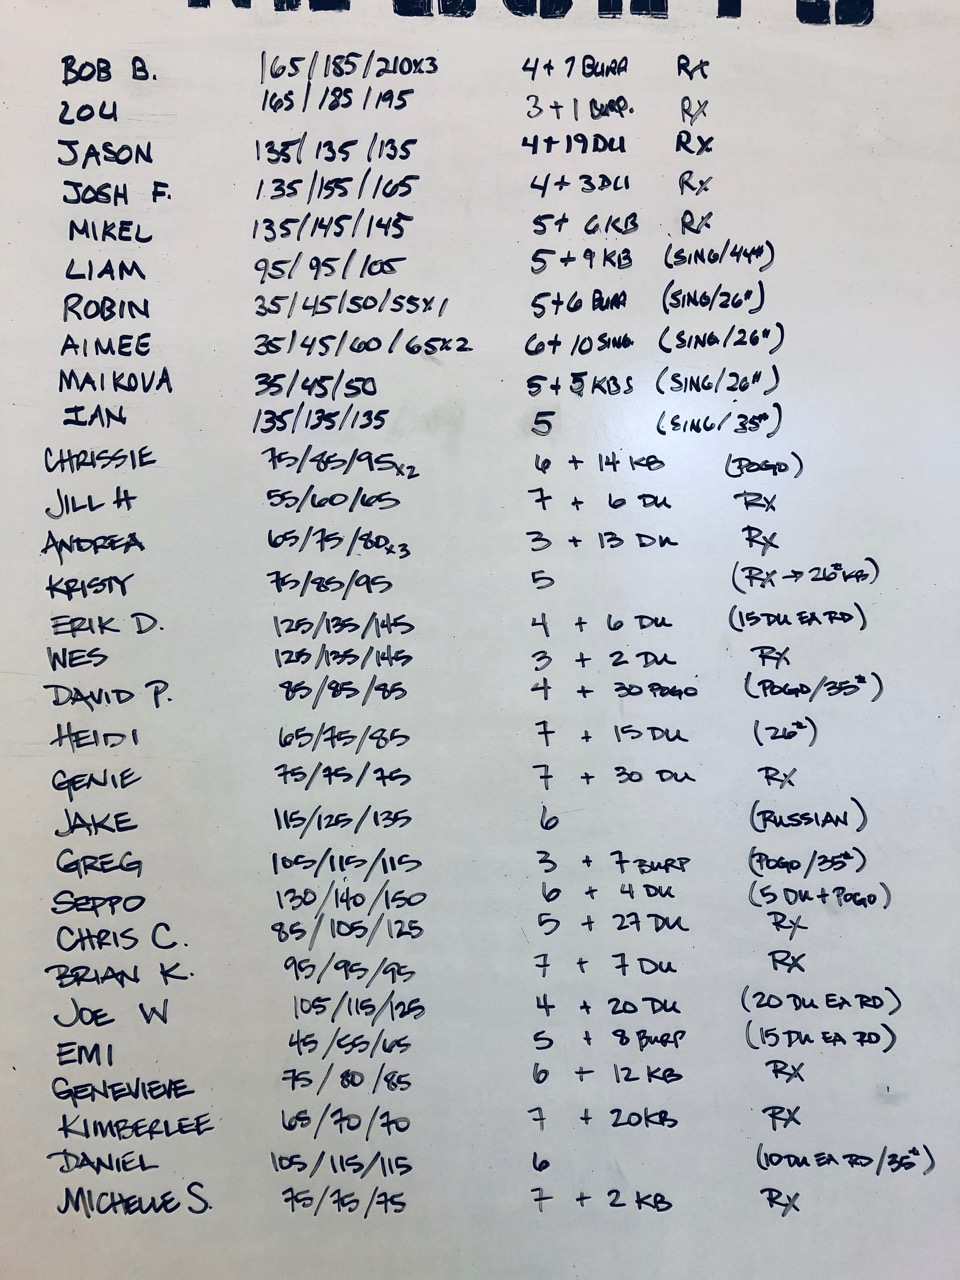 BOB B. 165/185/210x3 4+7 BURP Rx
ZOU 165/185/195 3+1 BURP. Rx
JASON 135/135/135 4+19 DU Rx
JOSH F. 135/155/165 4+3 DU Rx
MIKEL 135/145/145 5+6 KB Rx
LIAM 95/95/105 5+9 KB (SING/44#)
ROBIN 35/45/50/55x1 5+6 BURP (SING/26#)
AIMEE 35/45/60/65x2 6+10 SING. (SING/26#)
MAIKOVA 35/45/50 5+5 KBS (SING/26#)
IAN 135/135/135 5 (SING/35#)
CHRISSIE 75/85/95x2 6 + 14 KB (POGO)
JILL H 55/60/65 7 + 6 DU Rx
ANDREA 65/75/80x3 3 + 13 DU Rx
KRISTY 75/85/95 5 (Rx → 26# KB)
ERIK D. 125/135/145 4 + 6 DU (15 DU EA RD)
WES 125/135/145 3 + 2 DU Rx
DAVID P. 85/85/85 4 + 30 POGO (POGO/35#)
HEIDI 65/75/85 7 + 15 DU (26#)
GENIE 75/75/75 7 + 30 DU Rx
JAKE 115/125/135 6 (RUSSIAN)
GREG 105/115/115 3 + 7 BURP (POGO/35#)
SEPPO 130/140/150 6 + 4 DU (5 DU + POGO)
CHRIS C. 85/105/125 5 + 27 DU Rx
BRIAN K. 95/95/95 7 + 7 DU Rx
JOE W 105/115/125 4 + 20 DU (20 DU EA RD)
EMI 45/55/65 5 + 8 BURP (15 DU EA RD)
GENEVIEVE 75/80/85 6 + 12 KB Rx
KIMBERLEE 65/70/70 7 + 20KB Rx
DANIEL 105/115/115 6 (10 DU EA RD/35#)
MICHELLE S. 75/75/75 7 + 2 KB Rx